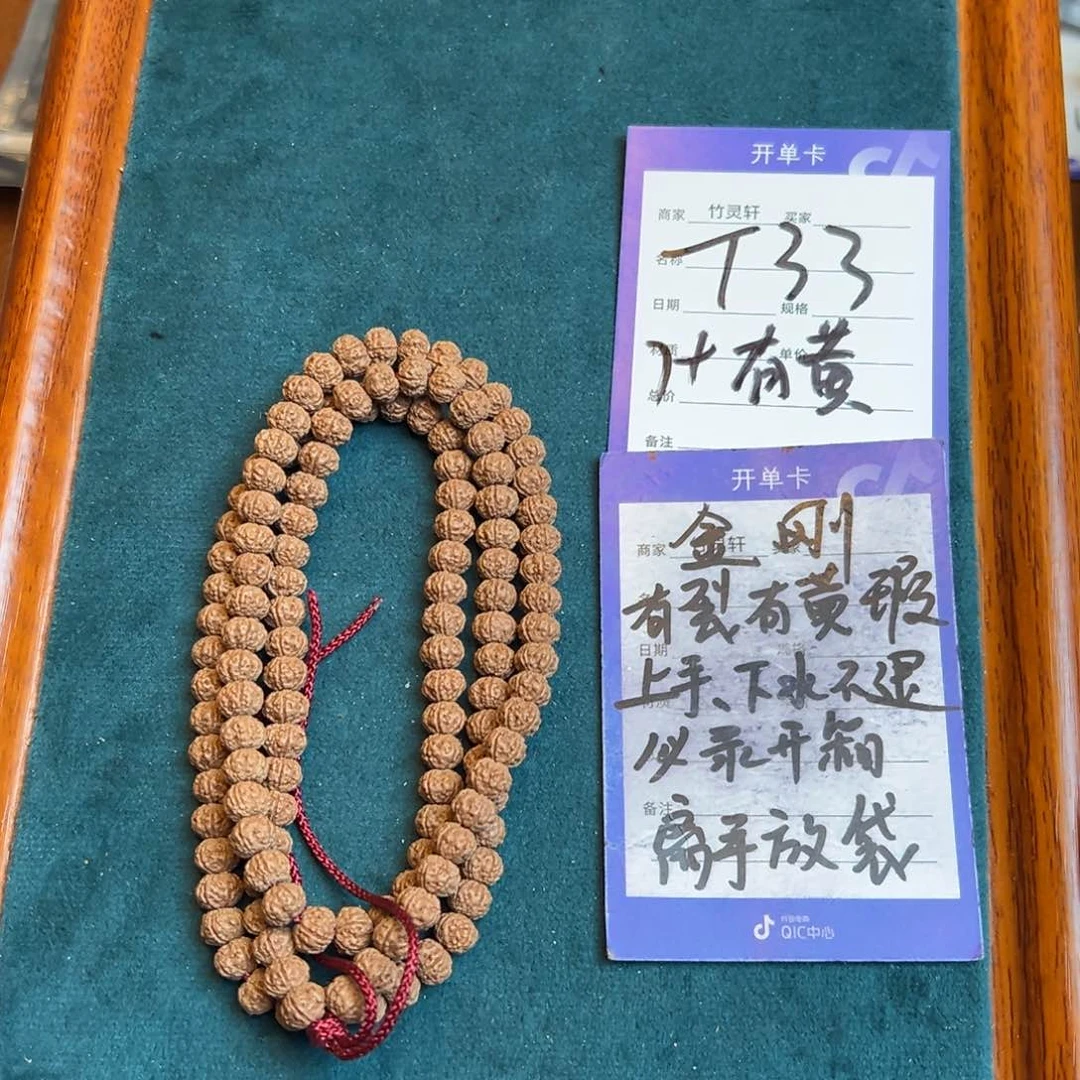 开单卡
商家 竹灵轩 买家
名称
T33
日期 规格
材质 单价
有黄
总价
备注
开单卡
金刚
商家 轩
有裂有黄瑕
日期
上手、下水不退
必录开箱
备注
离手放袋
抖音电商
QIC中心